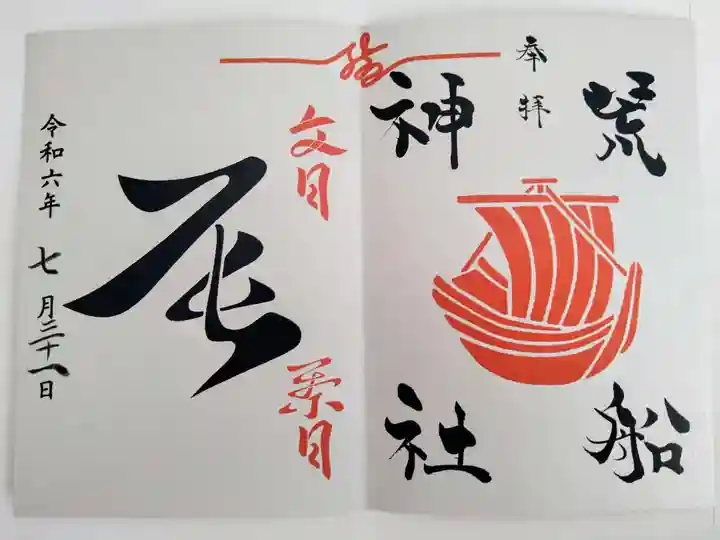 荒船
奉拝
神社
文月
葉月
辰
令和六年七月三十一日